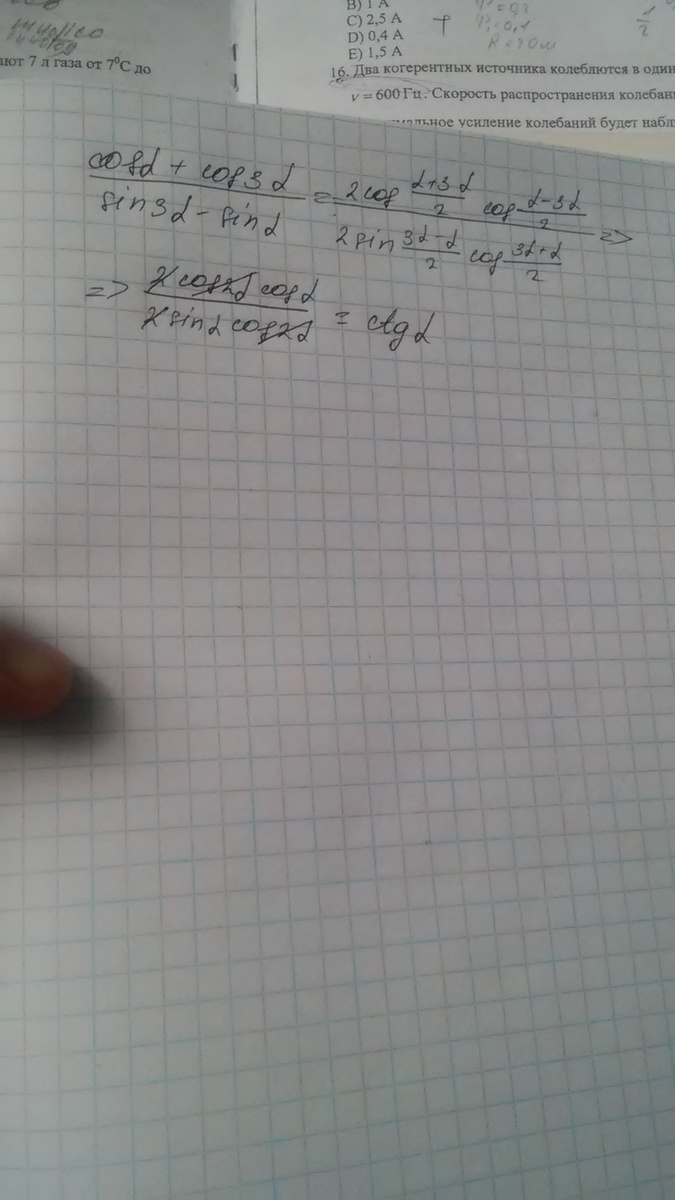 В) 1 А
С) 2,5 А
D) 0,4 А
Е) 1,5 А
R = 20м
1/2
ают 7 л газа от 7⁰С до
16. Два когерентных источника колеблются в один
ν = 600 Гц. Скорость распространения колебан
мальное усиление колебаний будет набл
(cosα + cos3α)/(sin3α - sinα) = (2cos (α+3α)/2 cos (α-3α)/2)/(2sin (3α-α)/2 cos (3α+α)/2) =>
=> (2cos2α cosα)/(2sinα cos2α) = ctgα